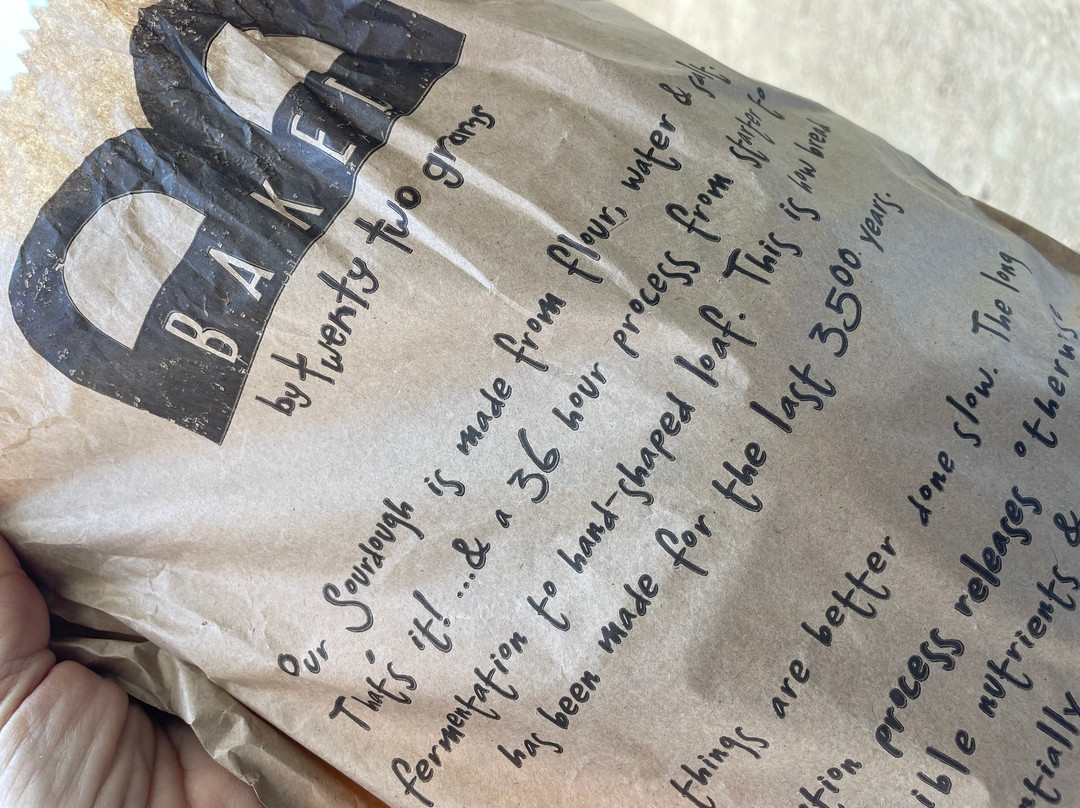 BAKED
by twenty two grams
Our Sourdough is made from flour, water & salt.
That's it! ...& a 36 hour process from starter to
fermentation to hand-shaped loaf. This is how bread
has been made for the last 3500 years.
things are better done slow. The long
process releases otherwise
nutrients &